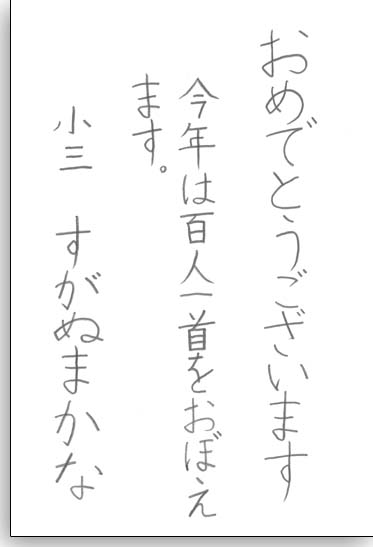 おめでとうございます
今年は百人一首をおぼえ
ます。
小三　すがぬまかな